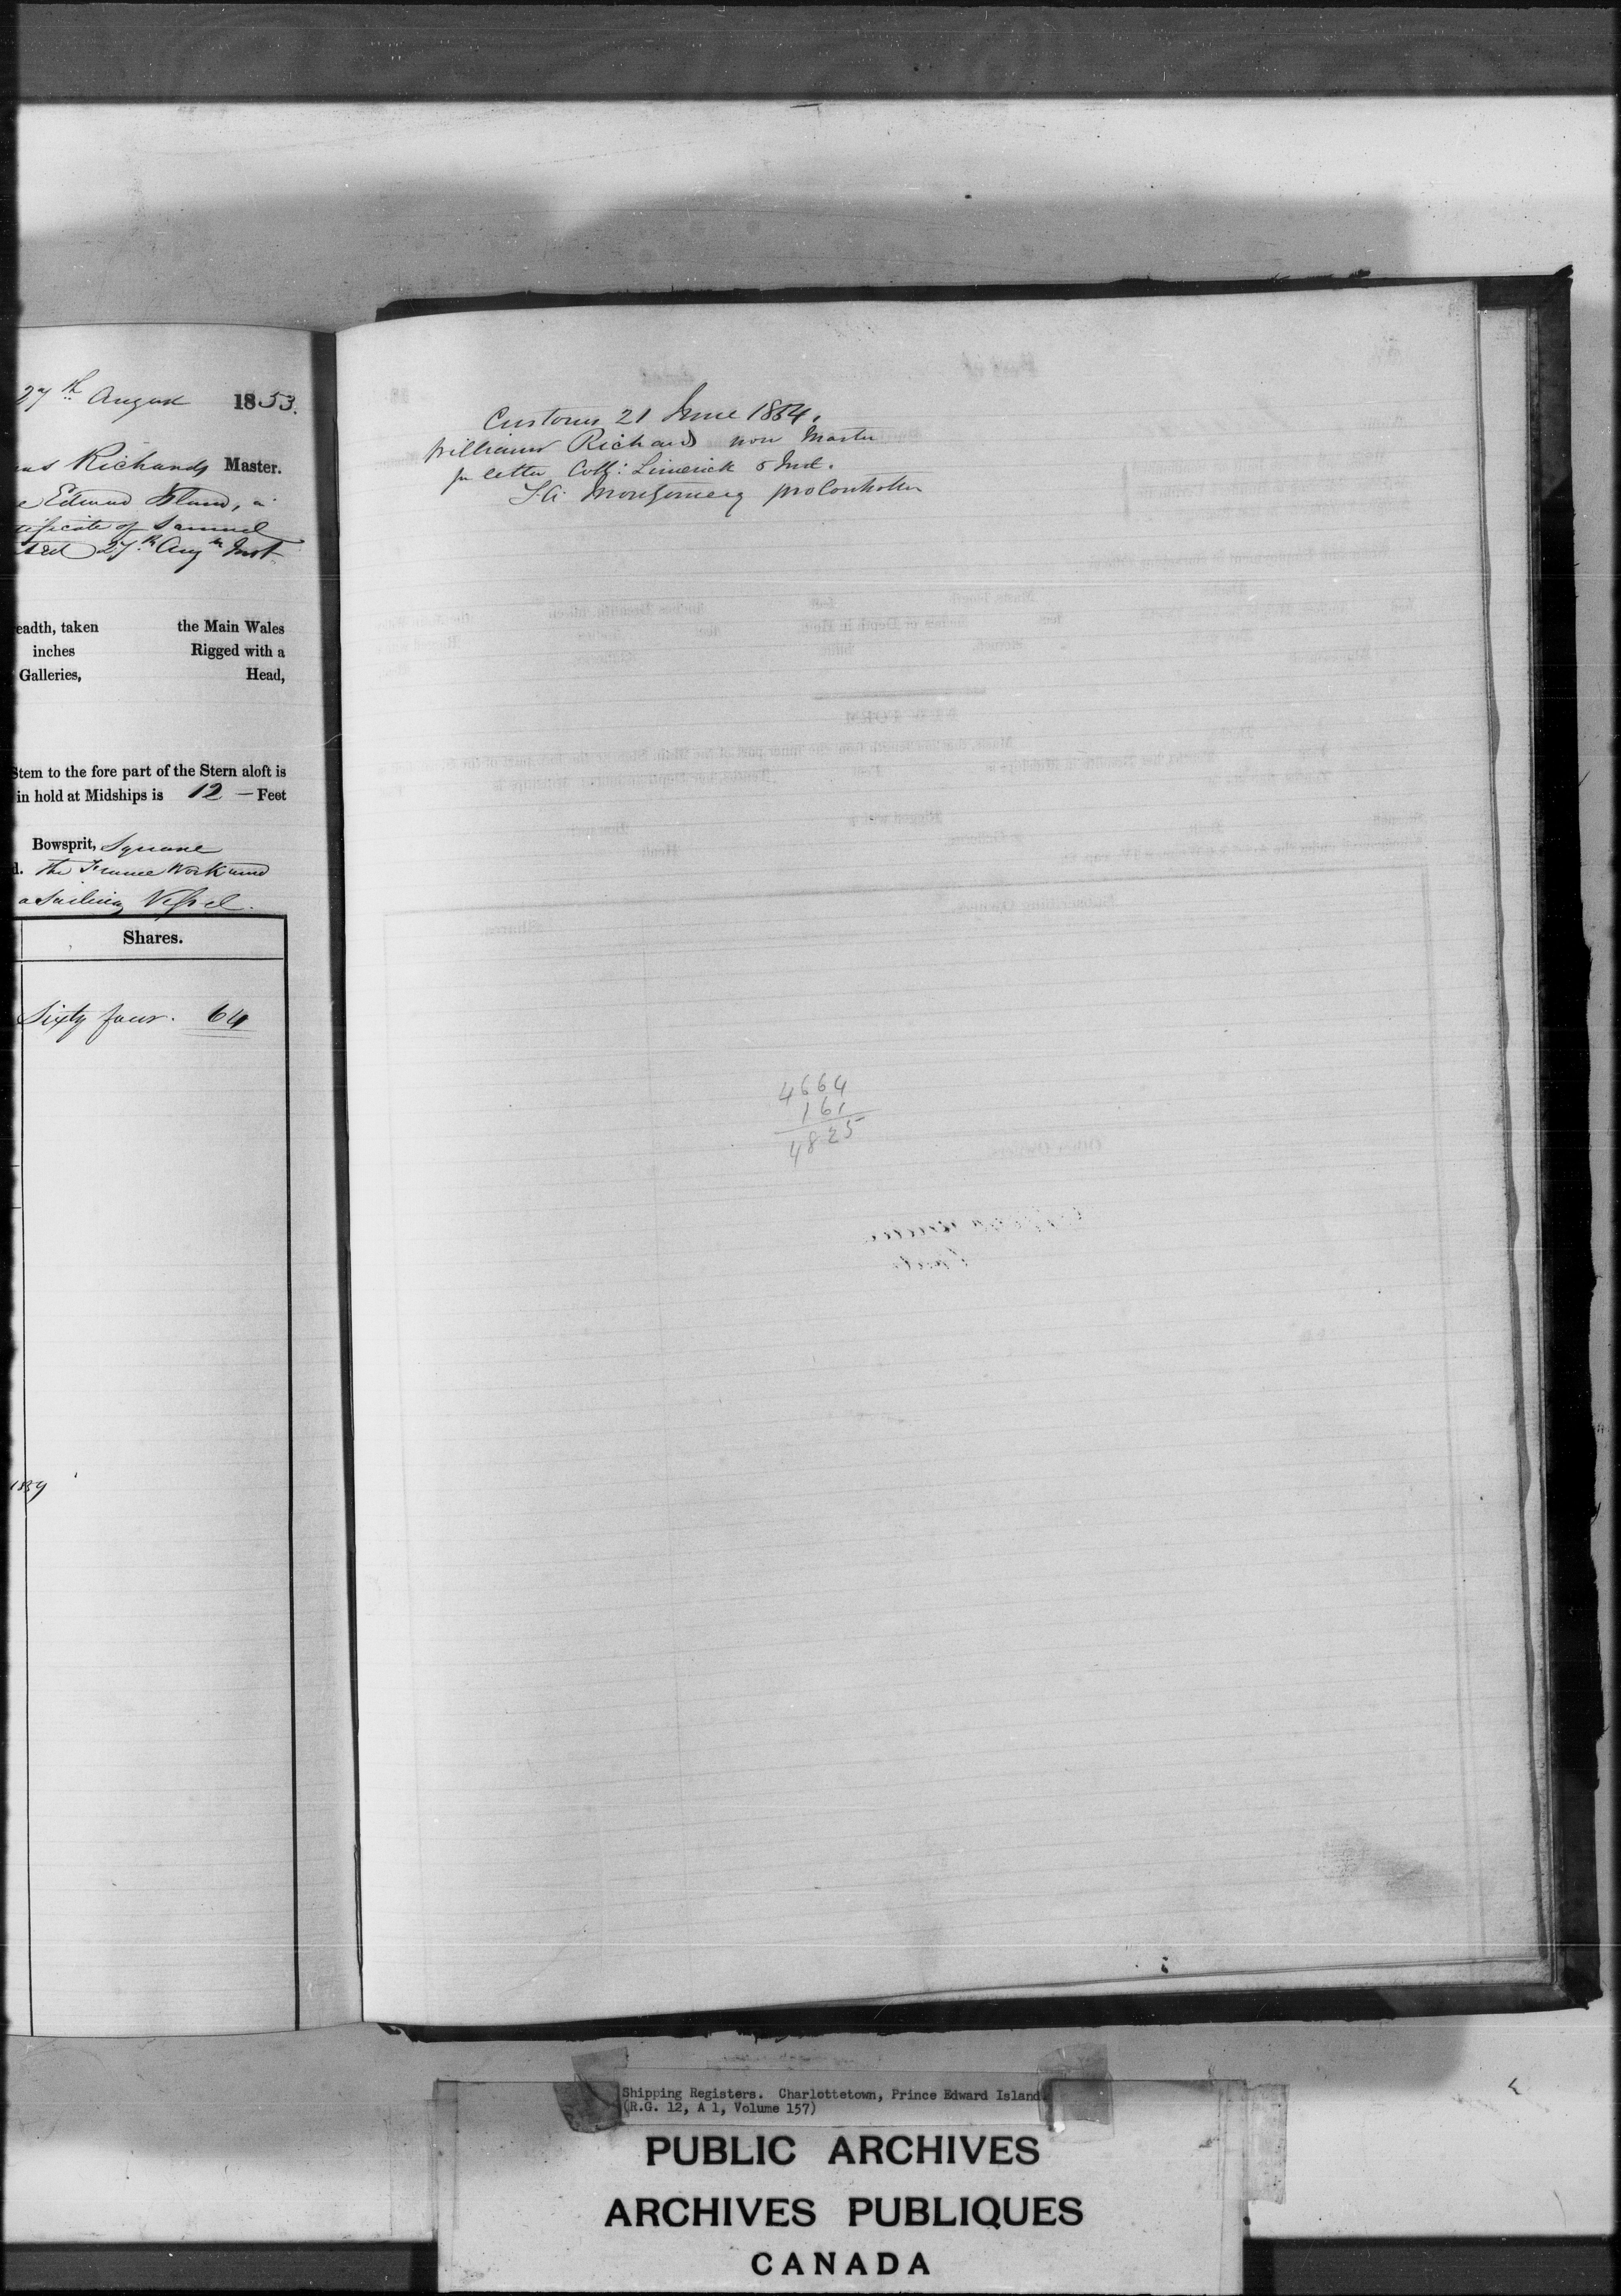 27th August 1853.
Richards Master.
Edward Island, a
tificate of Samuel
ted 27th Augt Inst
eadth, taken the Main Wales
inches Rigged with a
Galleries, Head,
Stem to the fore part of the Stern aloft is
in hold at Midships is 12 — Feet
Bowsprit, Square
d. The Frame Work and
a Sailing Vessel.
Shares.
Sixty four. 64
1839
Customs 21 June 1854.
William Richards now Master
pr letter Coll: Limerick 5 Inst.
Montgomery pro Controller
4664
161
4825
Shipping Registers. Charlottetown, Prince Edward Island
(R.G. 12, A 1, Volume 157)
PUBLIC ARCHIVES
ARCHIVES PUBLIQUES
CANADA